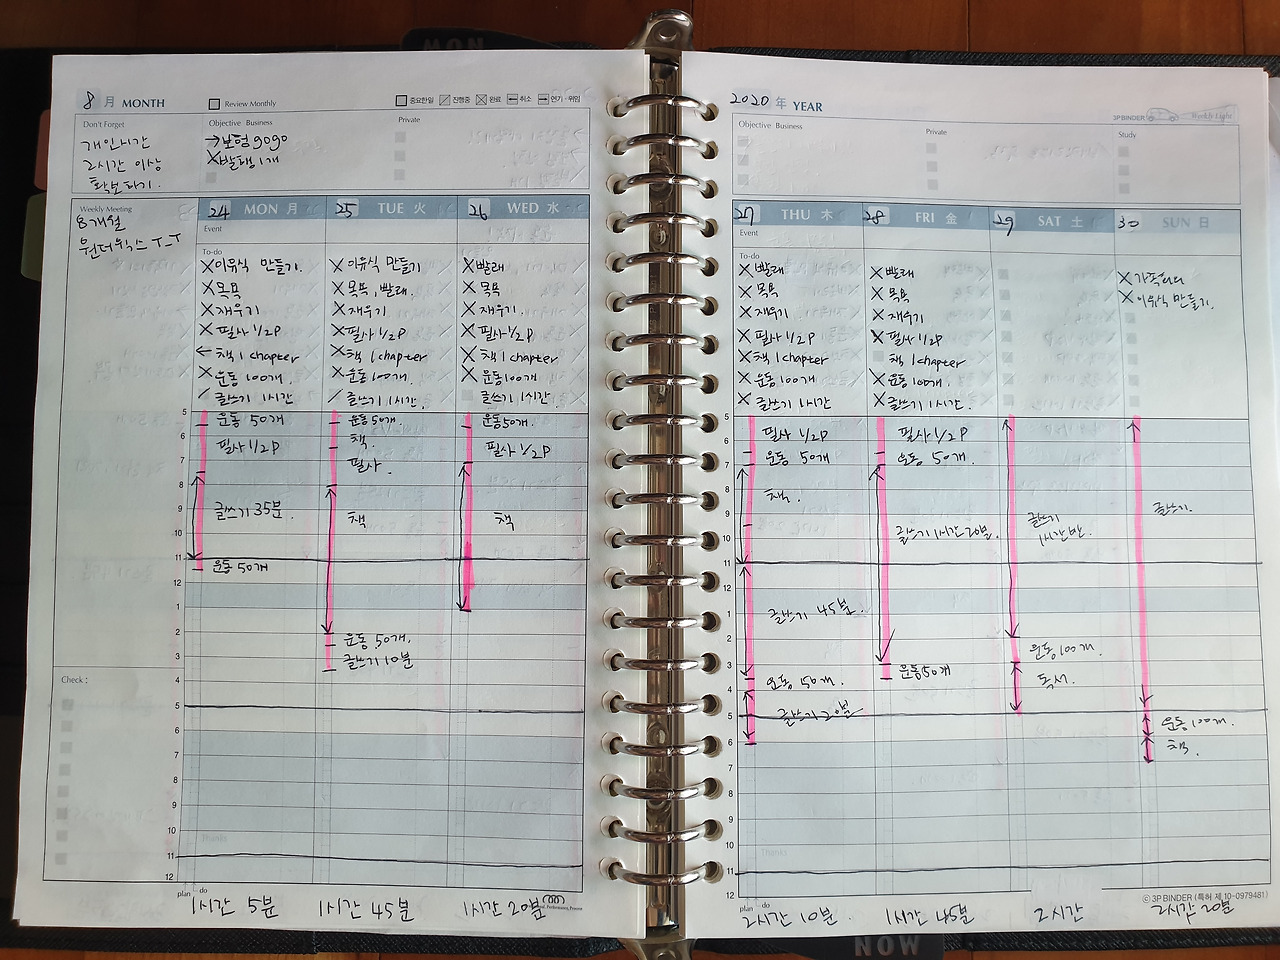 8 月 MONTH
Review Monthly
중요한일 진행중 완료 취소 연기·위임
Don't Forget
개인시간
2시간 이상
확보하기.
Objective Business
→보험 gogo
X발행 1개
Private
Weekly Meeting
8개월
원더윅스 T_T
24 MON 月
25 TUE 火
26 WED 水
Event
To-do
X이유식 만들기.
X목욕
X재우기
X필사 1/2P
←책 1 chapter
X운동 100개.
/글쓰기 1시간
X이유식 만들기
X목욕, 빨래.
X재우기.
X필사 1/2P
X책 1 chapter
X운동 100개.
/글쓰기 1시간.
X빨래
X목욕
X재우기
X필사 1/2P
X책 1 chapter
X운동 100개
글쓰기 1시간.
5
6
7
8
9
10
11
12
1
2
3
4
5
6
7
8
9
10
11
12
운동 50개
필사 1/2P
글쓰기 35분.
운동 50개
운동 50개.
책.
필사.
책
운동 50개.
글쓰기 10분
운동 50개.
필사 1/2P
책
Check :
Thanks
plan do
1시간 5분
1시간 45분
1시간 20분
2020 年 YEAR
3P BINDER
Weekly Light
Objective Business
Private
Study
27 THU 木
28 FRI 金
29 SAT 土
30 SUN 日
Event
To-do
X빨래
X목욕
X재우기
X필사 1/2P
X책 1 chapter
X운동 100개
X글쓰기 1시간
X빨래
X목욕
X재우기
X필사 1/2P
책 1 chapter
X운동 100개.
X글쓰기 1시간.
X이유식 만들기.
5
6
7
8
9
10
11
12
1
2
3
4
5
6
7
8
9
10
11
12
필사 1/2P
운동 50개
책.
글쓰기 45분.
운동 50개.
글쓰기 20분
필사 1/2P
운동 50개.
글쓰기 1시간 20분.
운동 50개
글쓰기
1시간 반.
운동 100개.
독서.
글쓰기.
운동 100개.
책.
Thanks
plan do
ⓒ 3P BINDER (특허 제 10-0979481)
2시간 10분.
1시간 45분
2시간
2시간 20분
NOW